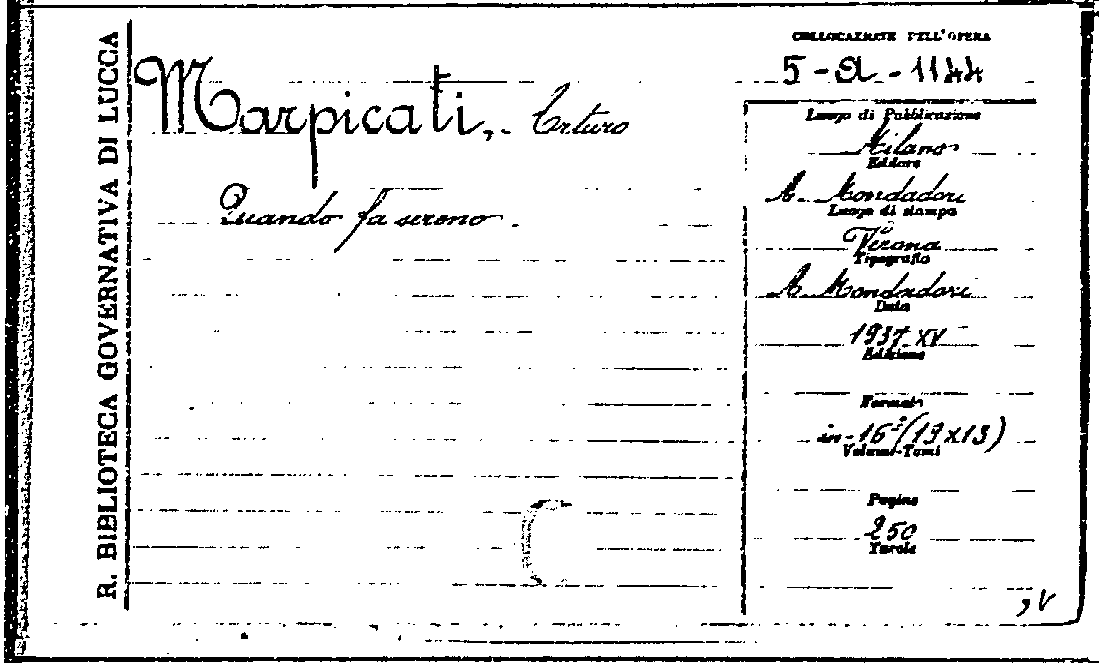 R. BIBLIOTECA GOVERNATIVA DI LUCCA
Marpicati, Arturo
Quando fa sereno.
COLLOCAZIONE DELL'OPERA
5-A-1144
Luogo di Pubblicazione
Milano
Editore
A. Mondadori
Luogo di stampa
Verona
Tipografo
A. Mondadori
Data
1937 XV
Edizione
Formato
in-16° (19x13)
Volumi-Tomi
Pagine
250
Tavole